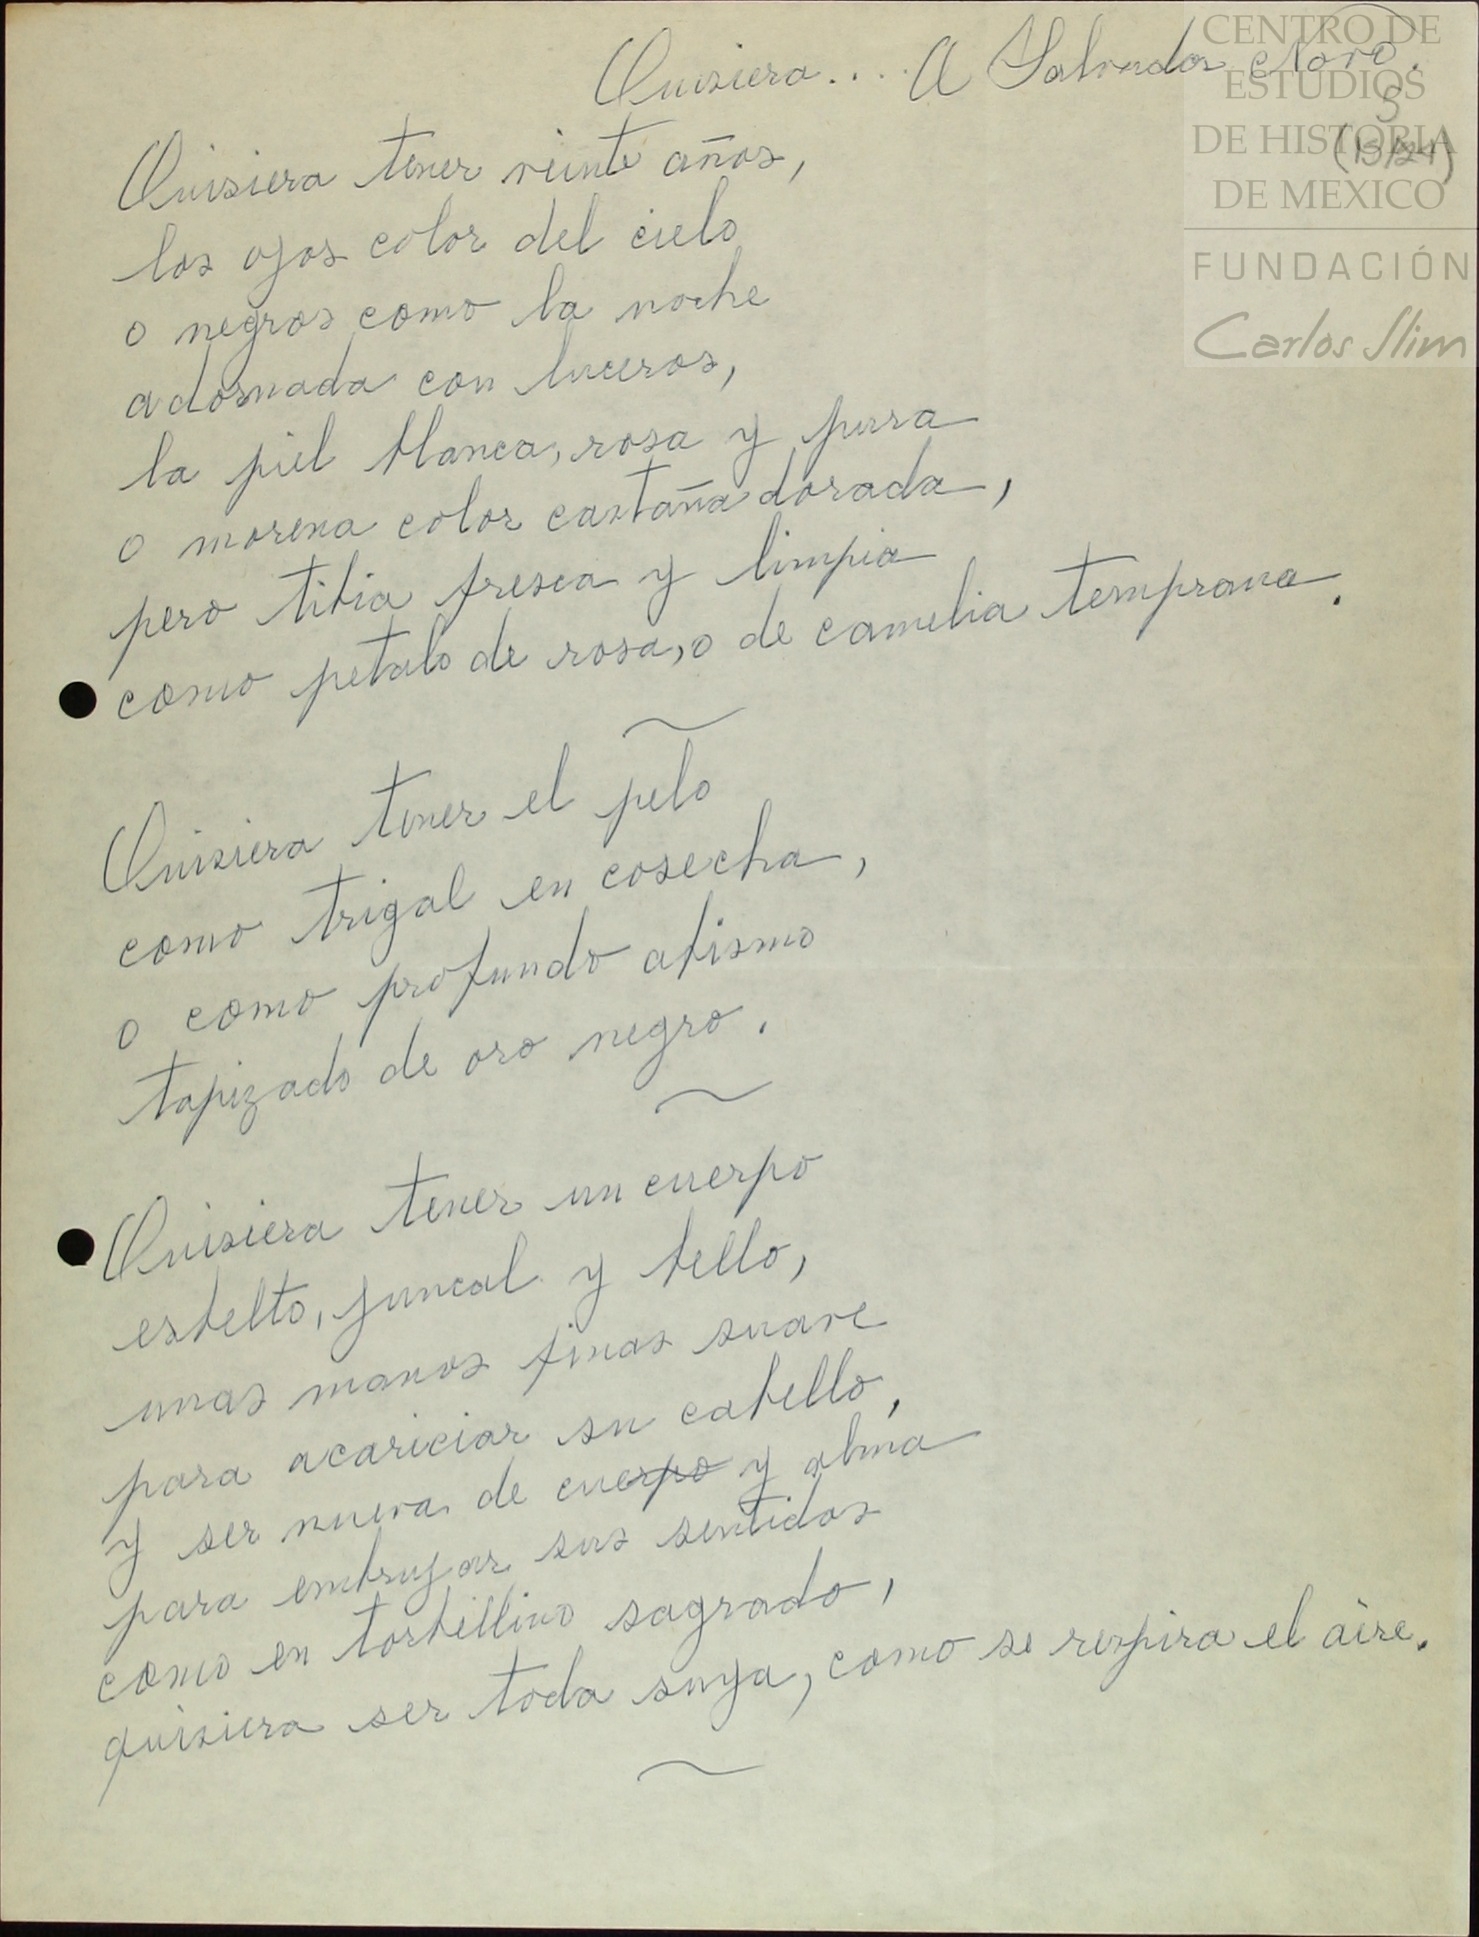 Quisiera.... A Salvador Novo.
5
(15/24)
CENTRO DE
ESTUDIOS
DE HISTORIA
DE MEXICO
FUNDACIÓN
Carlos Slim
Quisiera tener veinte años,
los ojos color del cielo
o negros como la noche
adornada con luceros,
la piel blanca, rosa y pura
o morena color castaña dorada,
pero tibia fresca y limpia
como petalo de rosa, o de camelia temprana.
Quisiera tener el pelo
como trigal en cosecha,
o como profundo abismo
tapizado de oro negro.
Quisiera tener un cuerpo
esbelto, juncal y bello,
unas manos finas suave
para acariciar su cabello,
y ser nueva de cuerpo y alma
para embrujar sus sentidos
como en torbellino sagrado,
quisiera ser toda suya, como se respira el aire.